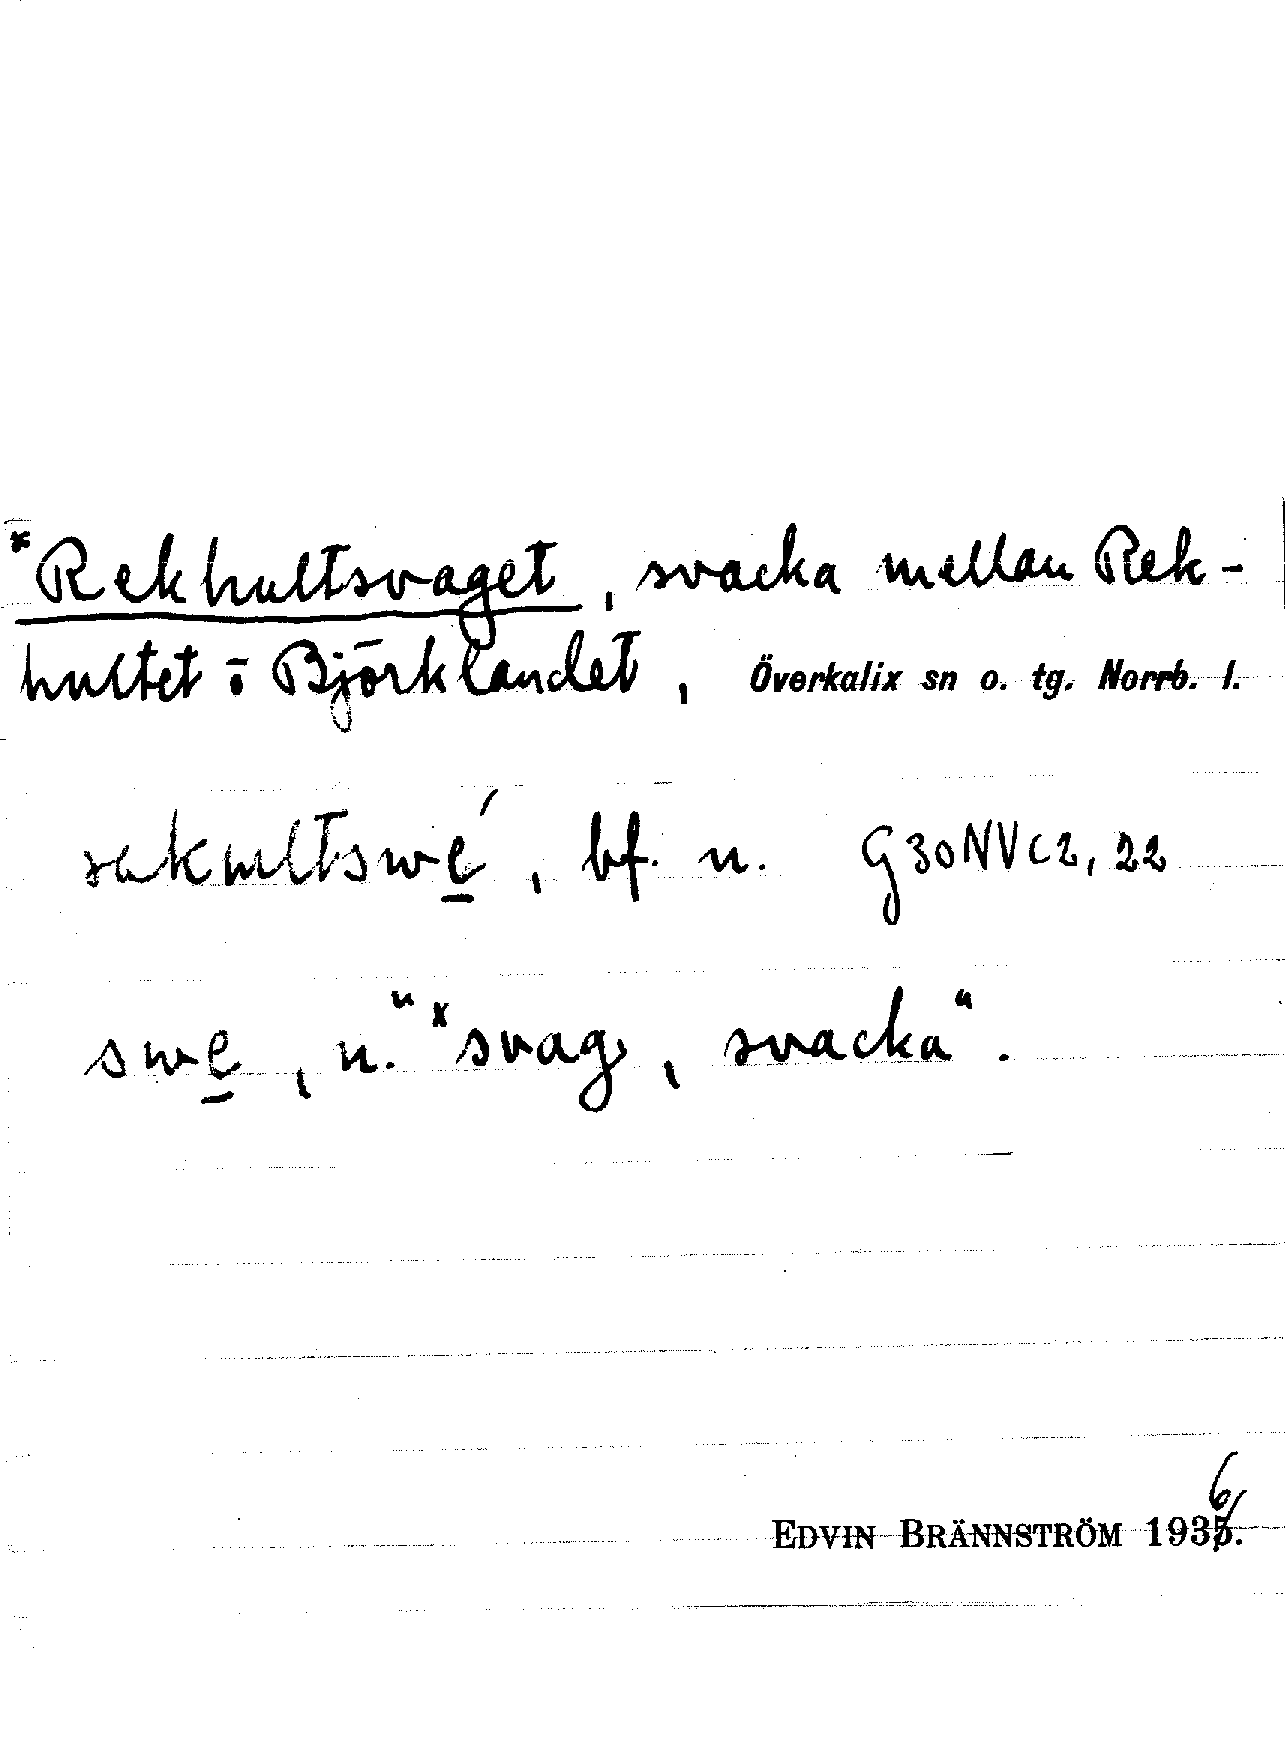 *Rekhultsvaget, svacka mellan Rek-
hultet i Björklandet, Överkalix sn o. tg. Norrb. l.
bf. n. G30NVc2, 22
swe̲, n. "*svag, svacka".
EDVIN BRÄNNSTRÖM 1936.